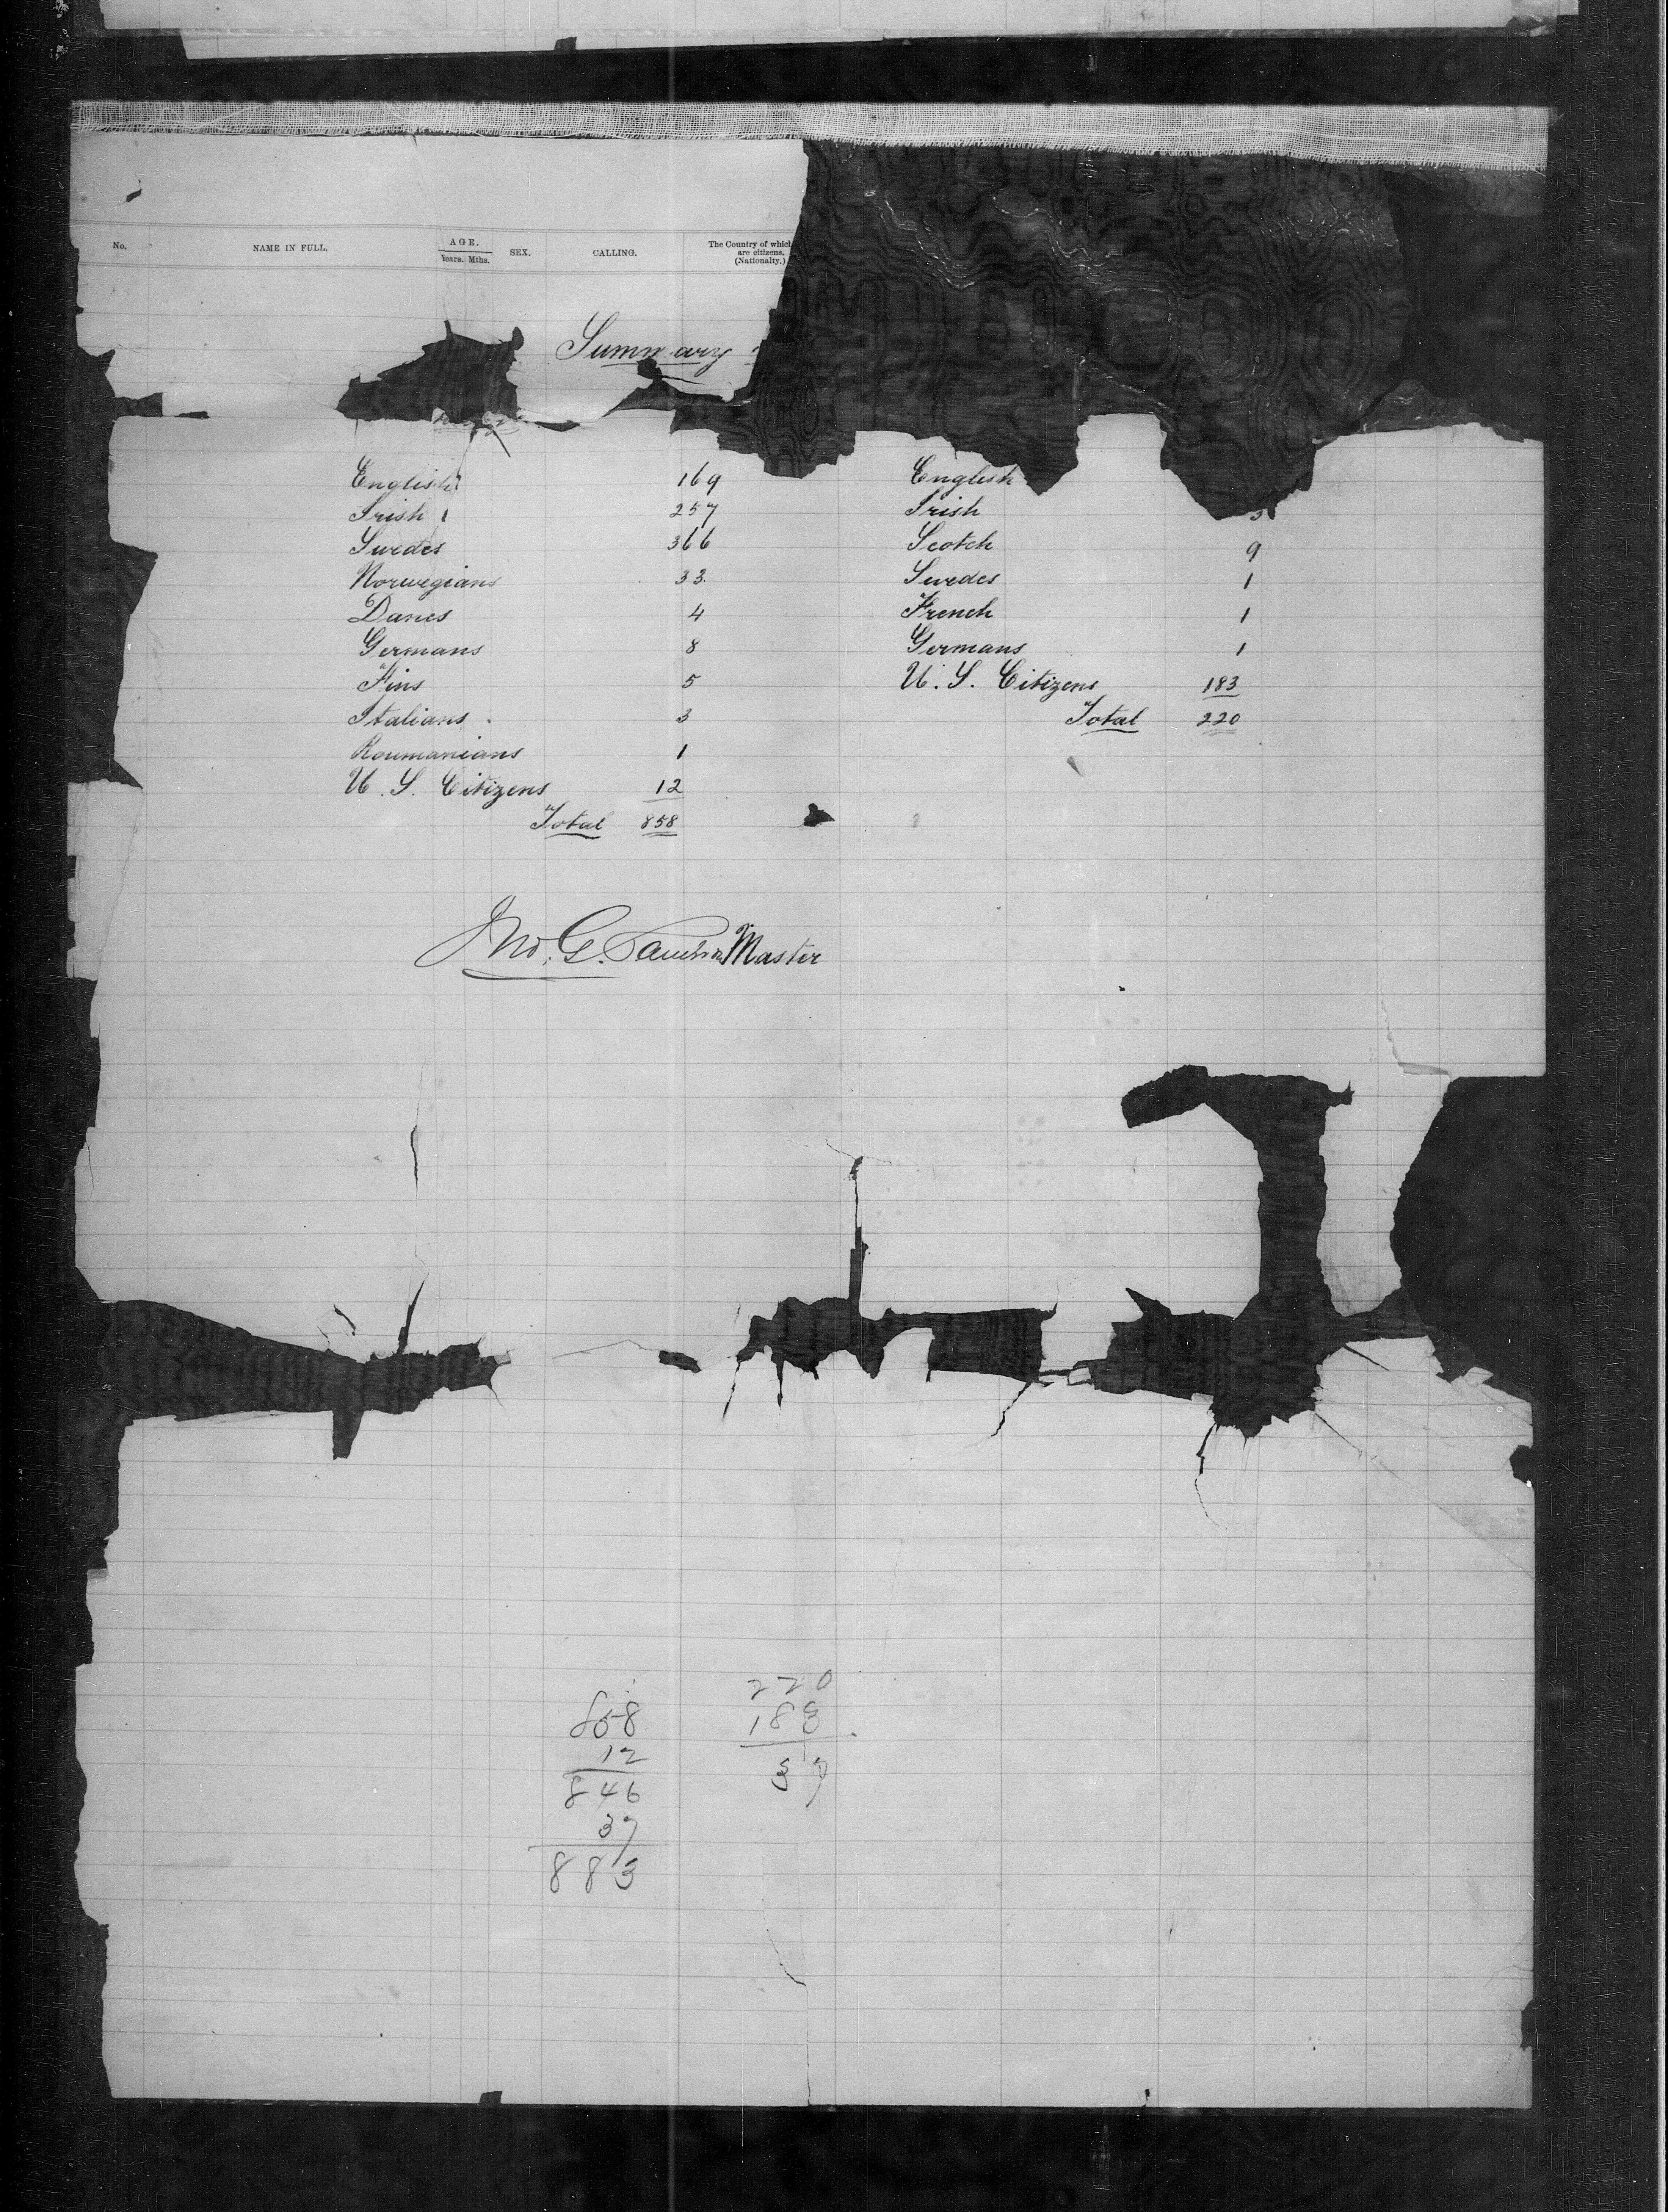 No. NAME IN FULL. AGE. SEX. CALLING. The Country of which
Years. Mths. are citizens.
(Nationalty.)
Summary
English 169 English
Irish 257 Irish
Swedes 366 Scotch 9
Norwegians 33 Swedes 1
Danes 4 French 1
Germans 8 Germans 1
Fins 5 U. S. Citizens 183
Italians 3 Total 220
Roumanians 1
U. S. Citizens 12
Total 858
Jno. G. Master
220
858 183
12
846 37
37
883